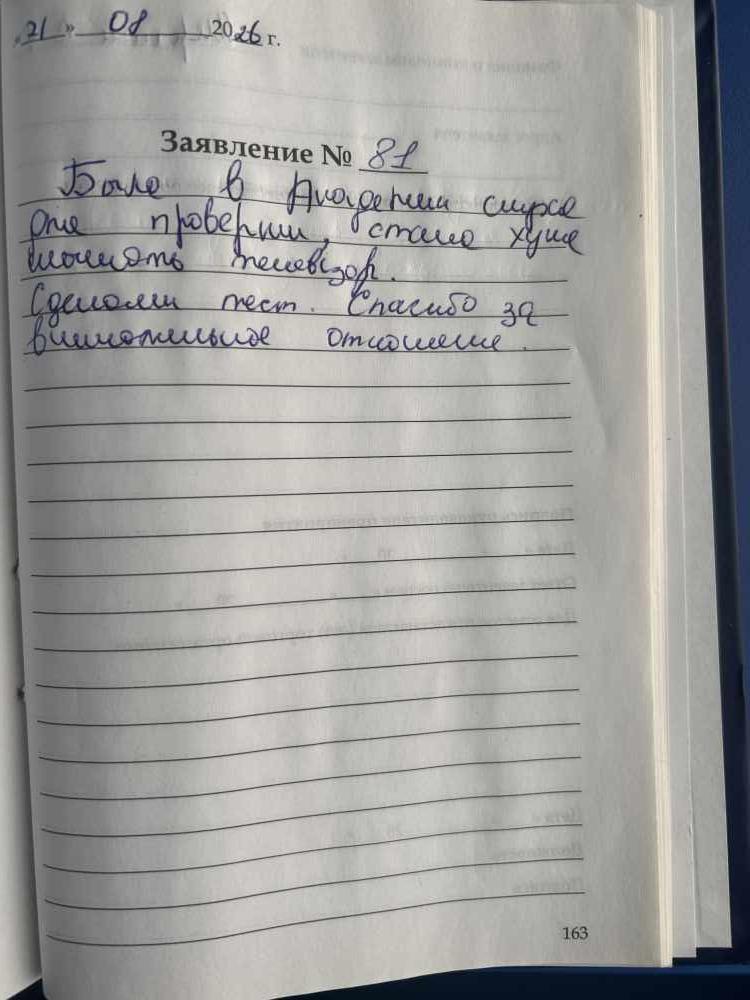 „21 » 08 2026 г.
Заявление № 81
Была в Академии слуха
для проверки, стала хуже
слышать телевізор.
Сделали тест. Спасибо за
внимательное отношение.
163